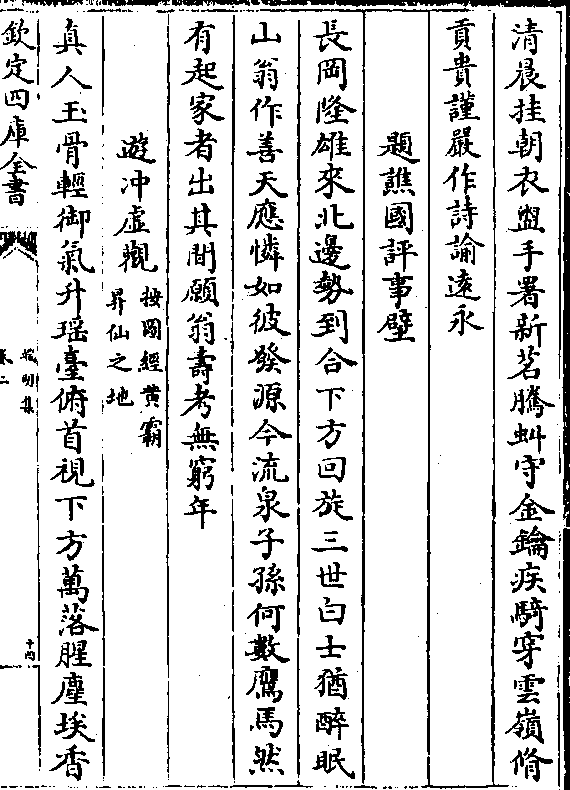 清晨挂朝衣盥手署新茗騰虯守金鑰疾騎穿雲嶺脩
貢貴謹嚴作詩諭遠永
題譙國評事壁
長岡隆雄來北邊勢到合下方回旋三世白士猶醉眠
山翁作善天應憐如彼發源今流泉子孫何數鷹馬然
有起家者出其間願翁壽考無窮年
遊冲虛觀
按圖經黄霸
昇仙之地
真人玉骨輕御氣升瑶臺俯首視下方萬落腥塵埃香
欽定四庫全書
卷二
十四